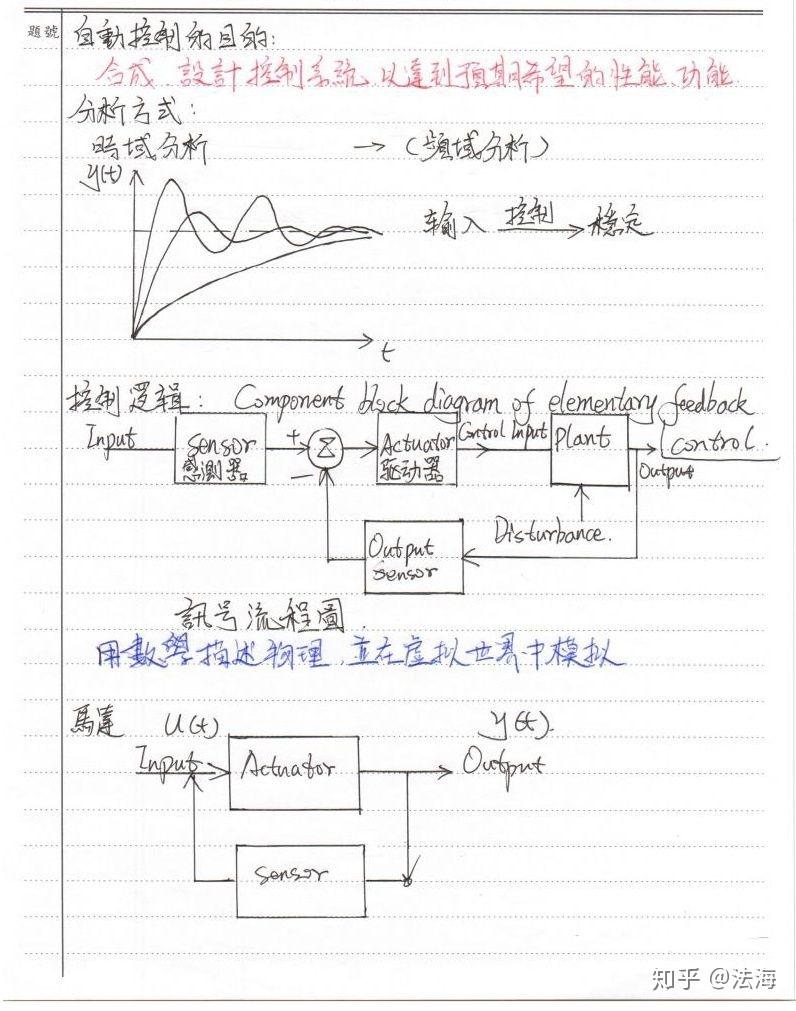 題號
自動控制的目的:
合成、設計控制系統,以達到預期希望的性能、功能.
分析方式:
時域分析 → (頻域分析)
y(t)
輸入 控制 → 穩定
t
控制逻辑: Component block diagram of elementary feedback control.
Input
Sensor
感測器
+
−
Σ
Actuator
驱动器
Control Input
Plant
Output
Disturbance.
Output
Sensor
訊号流程圖.
用數學描述物理,並在虚拟世界中模拟
馬達
U(t)
y(t).
Input
Actuator
Output
Sensor
知乎 @法海